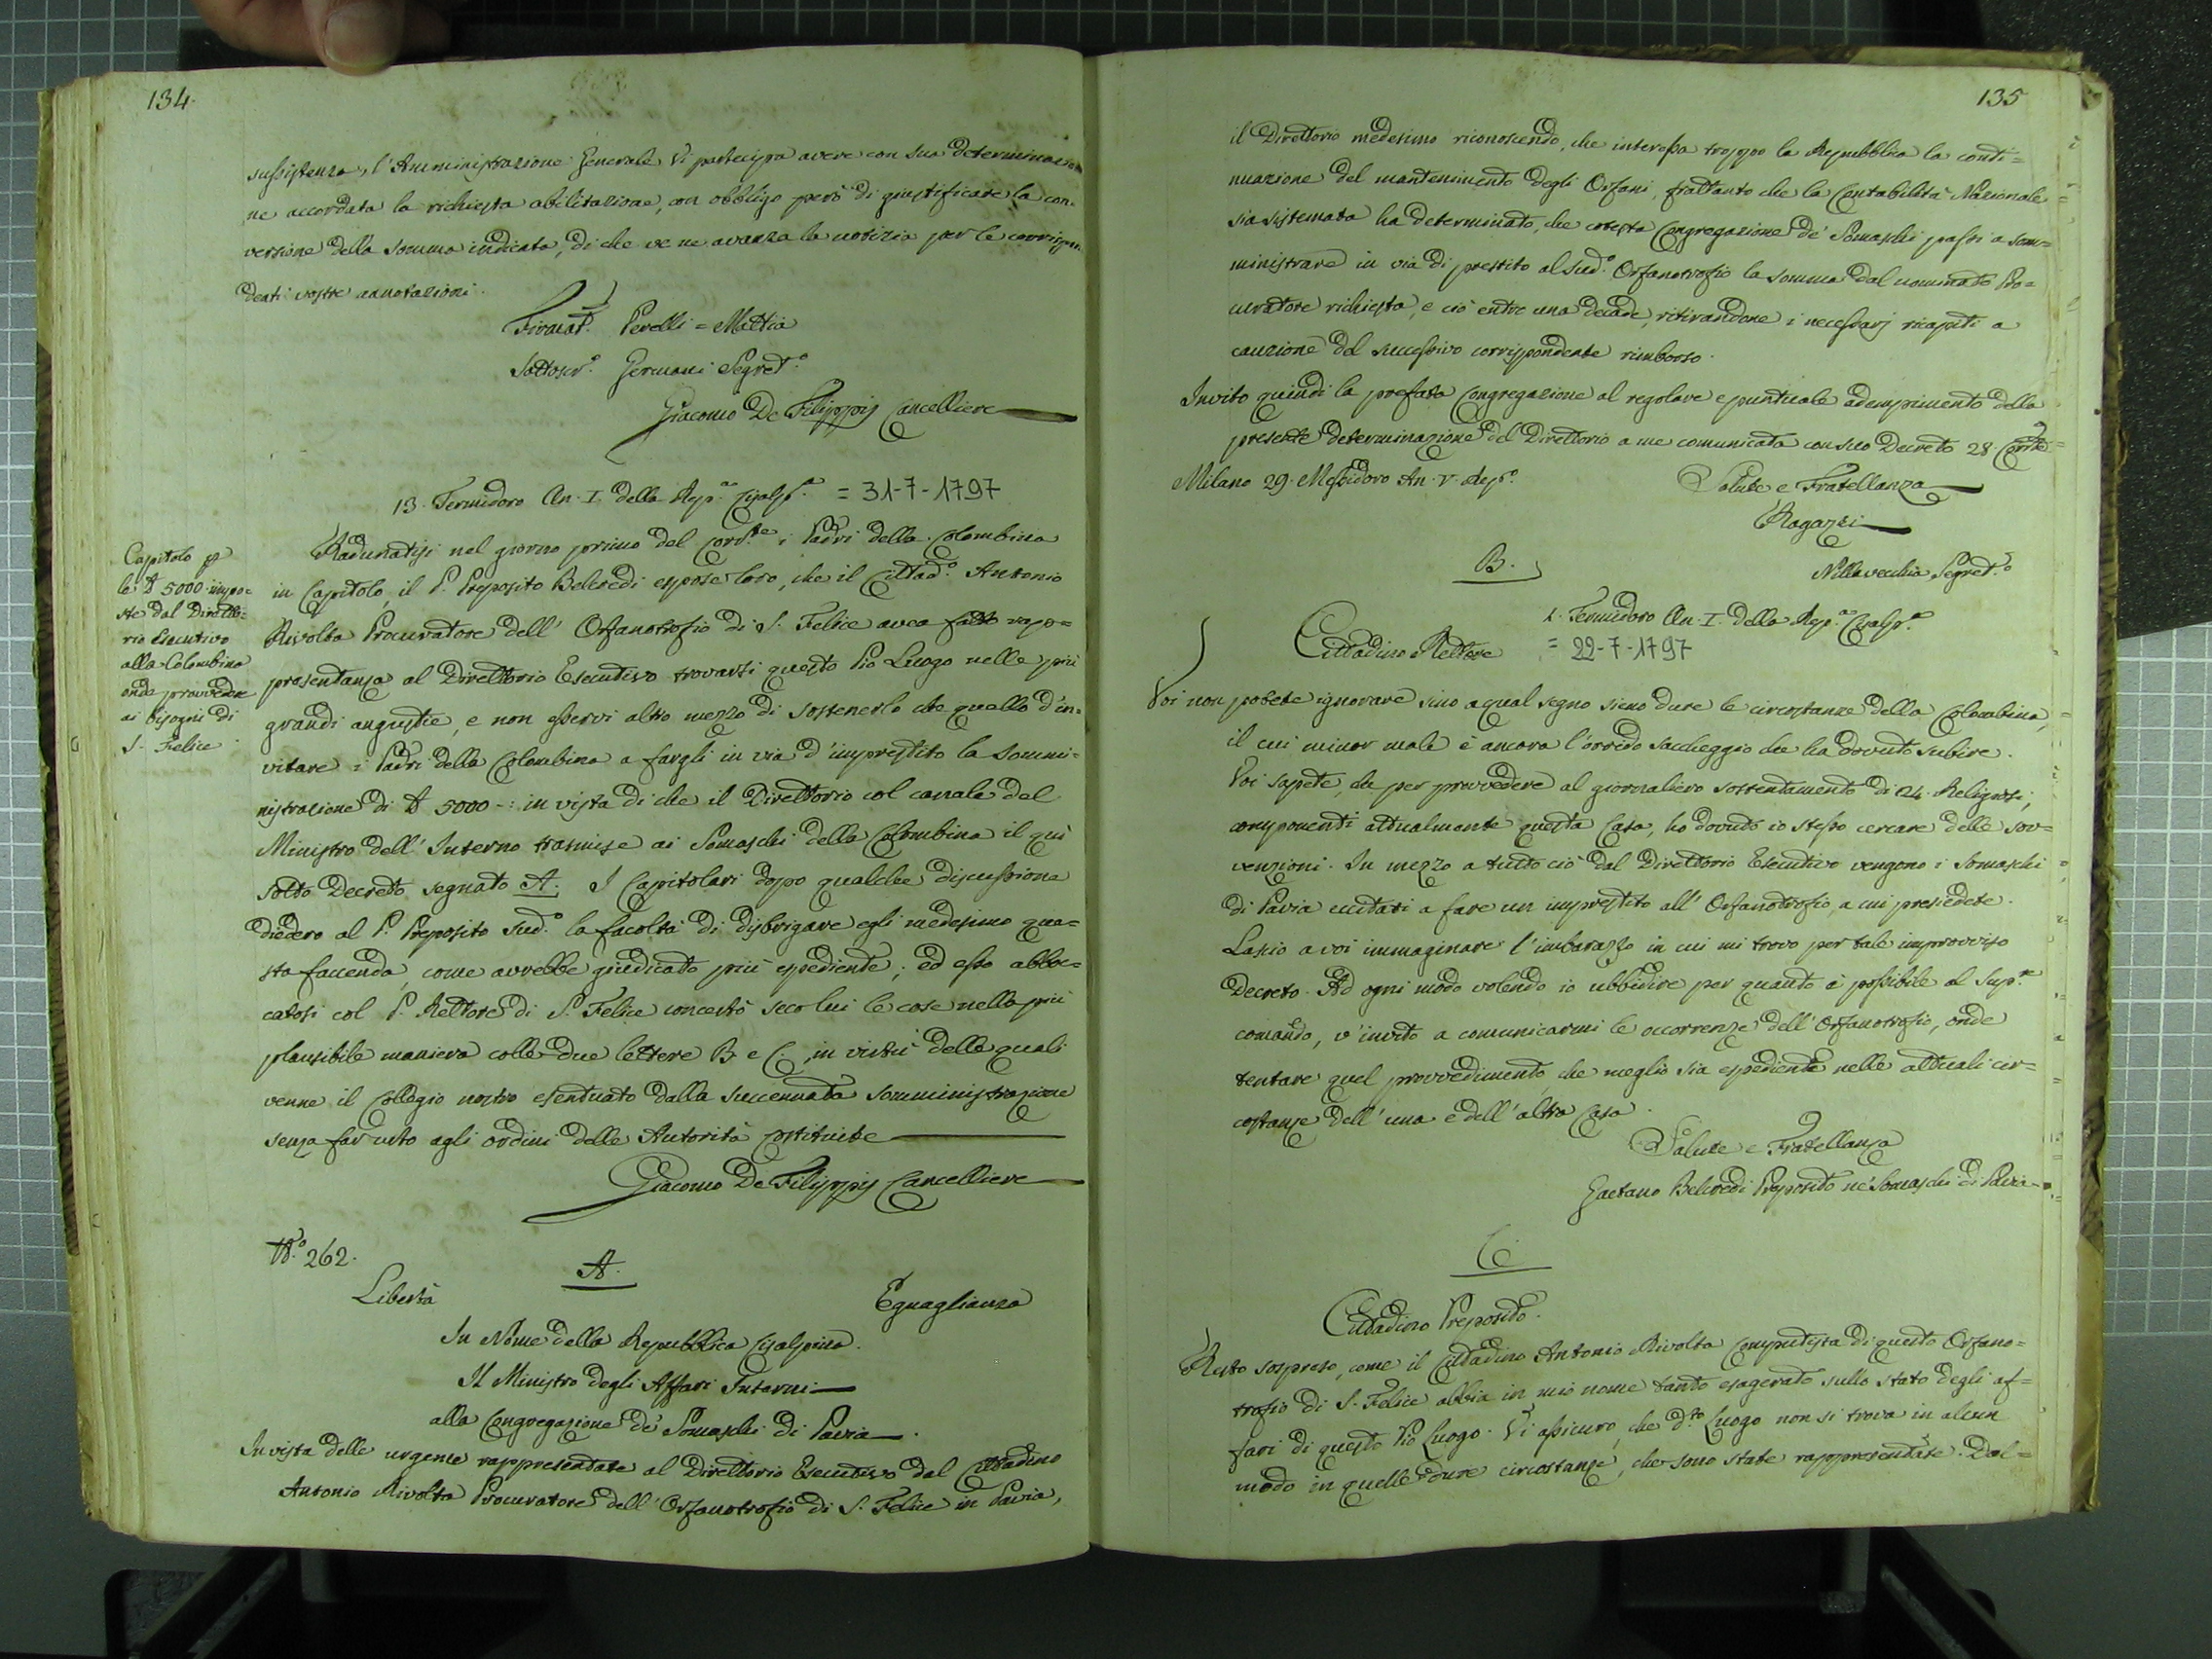 134.
sussistenza, l'Amministrazione Generale Vi partecipa avere con sua determinazio
ne accordata la richiesta abilitazione, con obbligo però di giustificare la con-
versione della somma indicata, di che ve ne avanza la notizia per le corrispon
denti vostre annotazioni.
Firmat. Perelli = Mattia
Sottoscr.º Germani Segret.º
Giacomo De Filippis Cancelliere
13. Termidoro An. I. della Rep.ca Cisalp.a = 31-7-1797
Capitolo p
le £ 5000 impo-
ste dal Diretto-
rio Esecutivo
alla Colombina
onde provvedere
ai bisogni di
S. Felice.
Radunatisi nel giorno primo del corr.te i Padri della Colombina
in Capitolo, il P. Preposito Belcredi espose loro, che il Cittad.º Antonio
Rivolta Procuratore dell' Orfanotrofio di S. Felice avea fatto rap=
presentanza al Direttorio Esecutivo trovarsi questo Pio Luogo nelle più
grandi angustie, e non esservi altro mezzo di sostenerlo che quello d'in=
vitare i Padri della Colombina a fargli in via d'imprestito la sommi-
nistrazione di £ 5000 -: in vista di che il Direttorio col canale del
Ministro dell' Interno trasmise ai Somaschi della Colombina il quì
sotto Decreto segnato A. I Capitolari dopo qualche discussione
diedero al P. Preposito Sud.º la facoltà di disbrigare egli medesimo que-
sta faccenda, come avrebbe giudicato più espediente; ed esso abboc-
catosi col P. Rettore di S. Felice concertò seco lui le cose nella più
plausibile maniera colle due lettere B. e C., in virtù delle quali
venne il Collegio nostro esentuato dalla succennata somministrazione
senza far urto agli ordini delle Autorità costituite
Giacomo De Filippis Cancelliere
N.º 262.
A.
Libertà Eguaglianza
In Nome della Repubblica Cisalpina.
Il Ministro degli Affari Interni
alla Congregazione de' Somaschi di Pavia.
In vista delle urgenze rappresentate al Direttorio Esecutivo dal Cittadino
Antonio Rivolta Procuratore dell' Orfanotrofio di S. Felice in Pavia,
135
il Direttorio medesimo riconoscendo, che interessa troppo la Repubblica la conti=
nuazione del mantenimento degli Orfani, frattanto che la Contabilità Nazionale
sia sistemata ha determinato, che cotesta Congregazione de' Somaschi passi a som=
ministrare in via di prestito al sud.º Orfanotrofio la somma dal nominato Pro=
curatore richiesta, e ciò entro una decade, ritirandone i necessarj ricapiti a
cauzione del successivo corrispondente rimborso.
Invito quindi la prefata Congregazione al regolare e puntuale adempimento della
presente determinazione del Direttorio a me comunicata con suo Decreto 28. Corr.te
Milano 29. Messidoro An. V. Rep.º Salute e Fratellanza
Ragazzi
Villavecchia Segret.º
B.
1. Termidoro An. I. della Rep.ca Cisalp.a
Cittadino Rettore = 22-7-1797
Voi non potete ignorare sino a qual segno sieno dure le circostanze della Colombina,
il cui minor male è ancora l'orrido saccheggio che ha dovuto subire.
Voi sapete, che per provvedere al giornaliero sostentamento di 24. Religiosi,
componenti attualmente questa Casa, ho dovuto io stesso cercare delle sov=
venzioni. In mezzo a tutto ciò dal Direttorio Esecutivo vengono i Somaschi
di Pavia eccitati a fare un imprestito all' Orfanotrofio, a cui presiedete.
Lascio a voi immaginare l'imbarazzo in cui mi trovo per tale improvviso
Decreto. Ad ogni modo volendo io ubbidire per quanto è possibile al Sup.re
comando, v'invito a comunicarmi le occorrenze dell' Orfanotrofio, onde
tentare quel provvedimento, che meglio sia espediente nelle attuali cir=
costanze dell'una e dell'altra Casa.
Salute e Fratellanza
Gaetano Belcredi Preposito ne' Somaschi di Pavia
C.
Cittadino Preposito.
Resto sorpreso, come il Cittadino Antonio Rivolta Computista di questo Orfano=
trofio di S. Felice abbia in mio nome tanto esagerato sullo stato degli af=
fari di questo Pio Luogo. Vi assicuro, che d.to Luogo non si trova in alcun
modo in quelle dure circostanze, che sono state rappresentate. Dal=